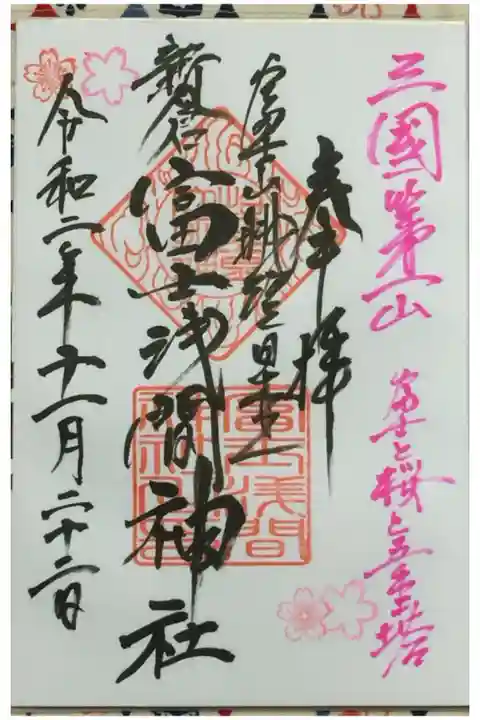 三國第一山
富士と桜と五重塔
奉拝
富士山
新倉富士浅間神社
令和二年十一月二十二日
富士浅間